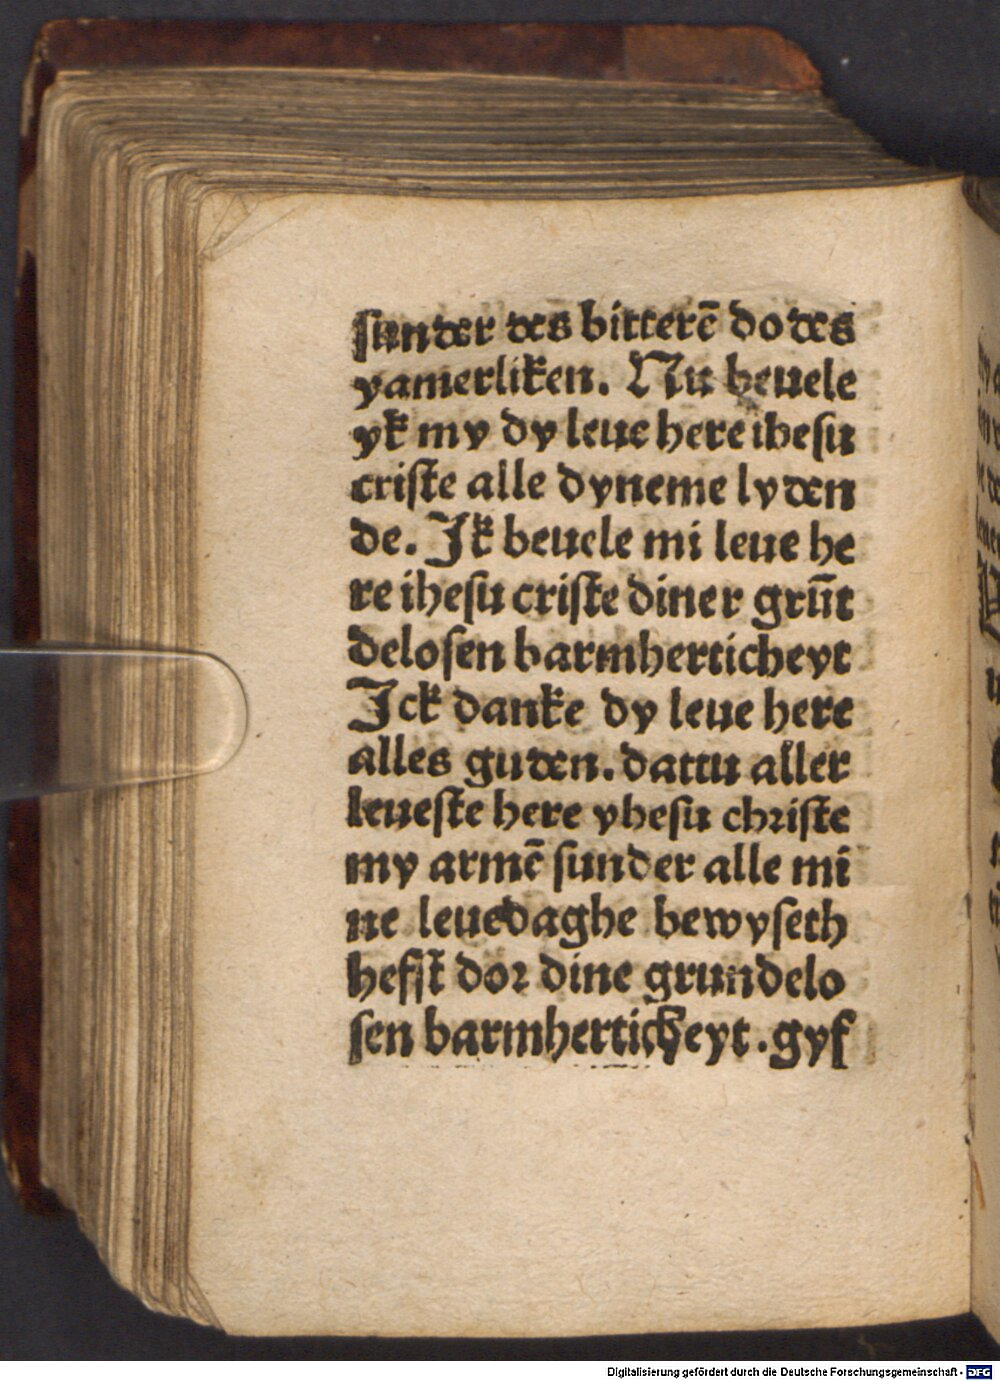 ſunder des bitterē dodes
yamerliken. Nu beuele
yk my dy leue here ihesu
criſte alle dyneme lyden
de. Jk beuele mi leue he
re iheſu criſte diner grūt
deloſen barmherticheyt
Jck danke dy leue here
alles guden. dattu aller
leueſte here yheſu chꝛiſte
my armē ſunder alle mi
ne leuedaghe bewyſeth
hefſt doꝛ dine grundelo
ſen barmherticheyt. gyf
Digitalisierung gefördert durch die Deutsche Forschungsgemeinschaft - DFG